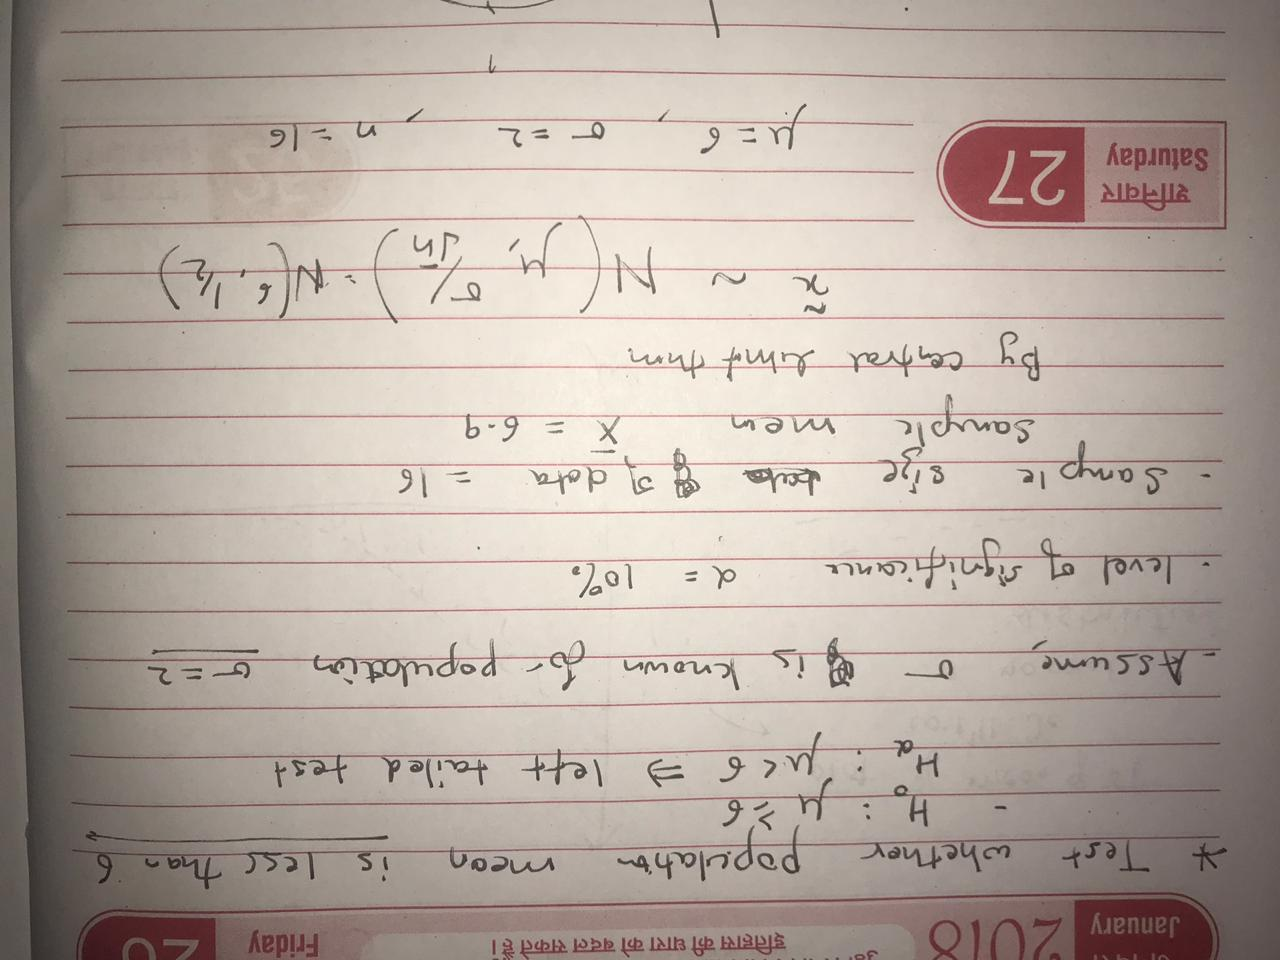 January 2018
इतिहास की धारा को बदल सकते हैं।
Friday
* Test whether population mean is less than 6
- H₀ : μ ≥ 6
Hₐ : μ < 6 ⇒ left tailed test
- Assume, σ is known for population σ = 2
- level of significance α = 10%
- Sample size of data = 16
Sample mean x̄ = 6.9
By central limit thm
x̃ ~ N(μ, σ/√n) = N(6, 1/2)
शनिवार
Saturday 27
μ = 6, σ = 2, n = 16